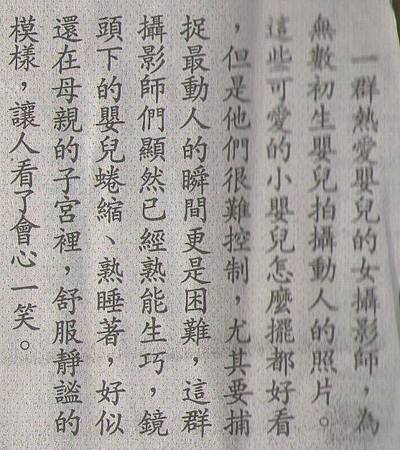 一群熱愛嬰兒的女攝影師，為
無數初生嬰兒拍攝動人的照片。
這些可愛的小嬰兒怎麼擺都好看
，但是他們很難控制，尤其要捕
捉最動人的瞬間更是困難，這群
攝影師們顯然已經熟能生巧，鏡
頭下的嬰兒蜷縮、熟睡著，好似
還在母親的子宮裡，舒服靜謐的
模樣，讓人看了會心一笑。